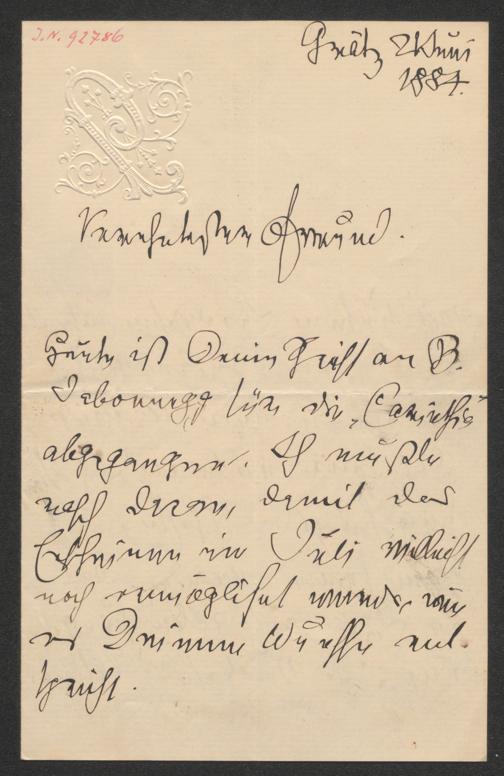 J.N. 92786
Grätz 2 Juni
1884.
Verehrtester Freund.
Heute ist Deine Schrift an B.
Jabornegg für die „Carinthia“
abgegangen. Ich mußte
rasch daran, damit das
Erscheinen im Juli vielleicht
noch ermöglicht werde, wie
es Deinem Wunsche ent-
spricht.